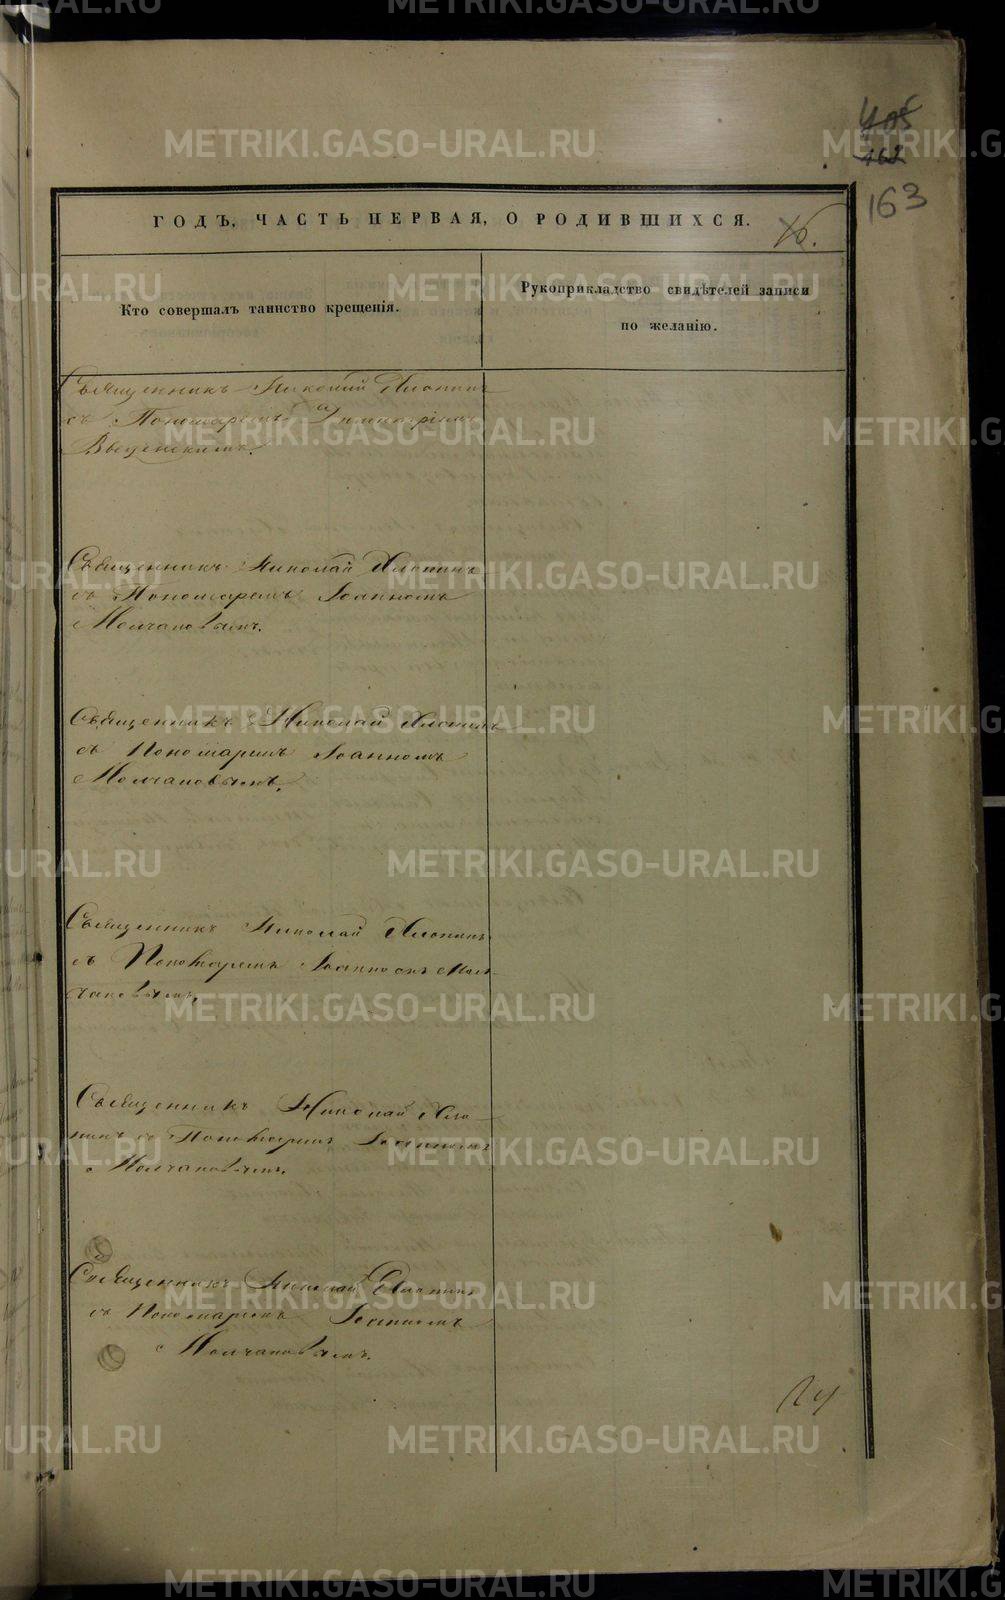 405
162
163
ГОДЪ, ЧАСТЬ ПЕРВАЯ, О РОДИВШИХСЯ.
16.
Кто совершалъ таинство крещенія.
Рукоприкладство свидѣтелей записи
по желанію.
Священникъ Николай Хлопинъ
съ Пономаремъ Димитріемъ
Введенскимъ.
Священникъ Николай Хлопинъ
съ Пономаремъ Іоанномъ
Молчановымъ.
Священникъ Николай Хлопинъ
съ Пономаремъ Іоанномъ
Молчановымъ.
Священникъ Николай Хлопинъ
съ Пономаремъ Іоанномъ Мол-
чановымъ.
Священникъ Николай Хло-
пинъ съ Пономаремъ Іоанномъ
Молчановымъ.
Священникъ Николай Хлопинъ
съ Пономаремъ Іоанномъ
Молчановымъ.
METRIKI.GASO-URAL.RU